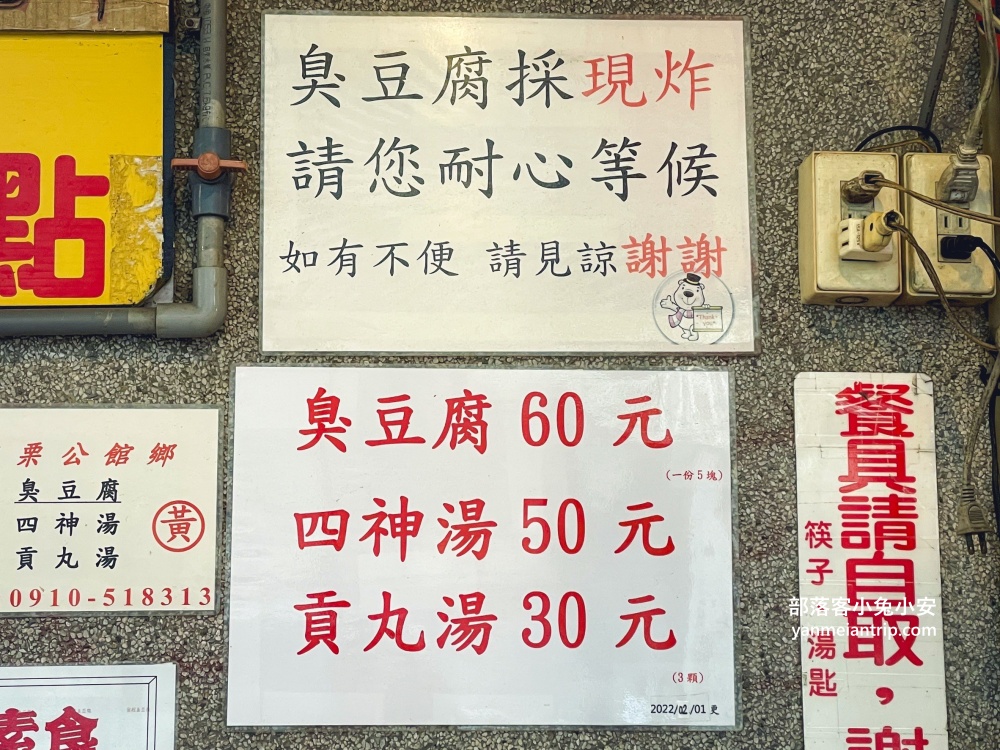 臭豆腐採現炸
請您耐心等候
如有不便 請見諒謝謝
"Thank you"
點
臭豆腐 60 元
(一份5塊)
四神湯 50 元
貢丸湯 30 元
(3顆)
2022/02/01 更
栗公館鄉
臭豆腐
四神湯
貢丸湯
黃
0910-518313
素食
餐具請自取，謝
筷子 湯匙
部落客小兔小安
yanmeiantrip.com